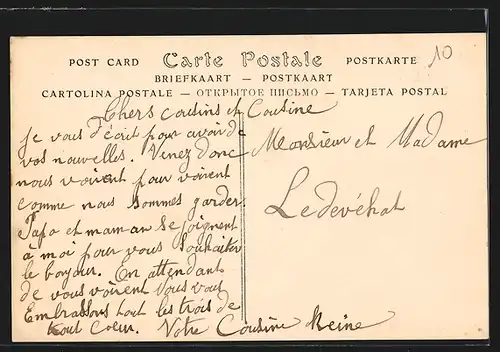 POST CARD Carte Postale POSTKARTE
BRIEFKAART — POSTKAART
CARTOLINA POSTALE — ОТКРЫТОЕ ПИСЬМО — TARJETA POSTAL
10
Chers cousins et Cousine
Je vous d'écrit pour avoir de
vos nouvelles. Venez donc
nous voirent pour voirent
comme nous sommes garder.
Papa et maman se joignent
a moi pour vous souhaiter
le bonjour. En attendant
de vous voirent vous vous
Embrassons tout les trois de
tout coeur. Votre Cousine Reine
Monsieur et Madame
Ledevéhat